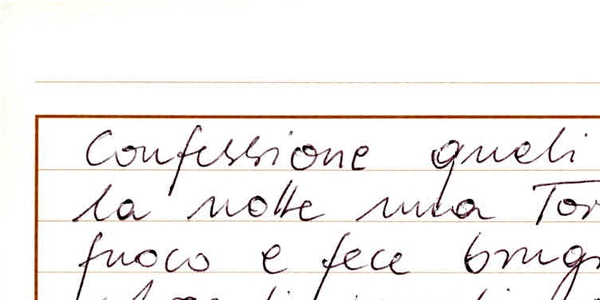 Confessione quali
la notte una Tor
fuoco e fece brug